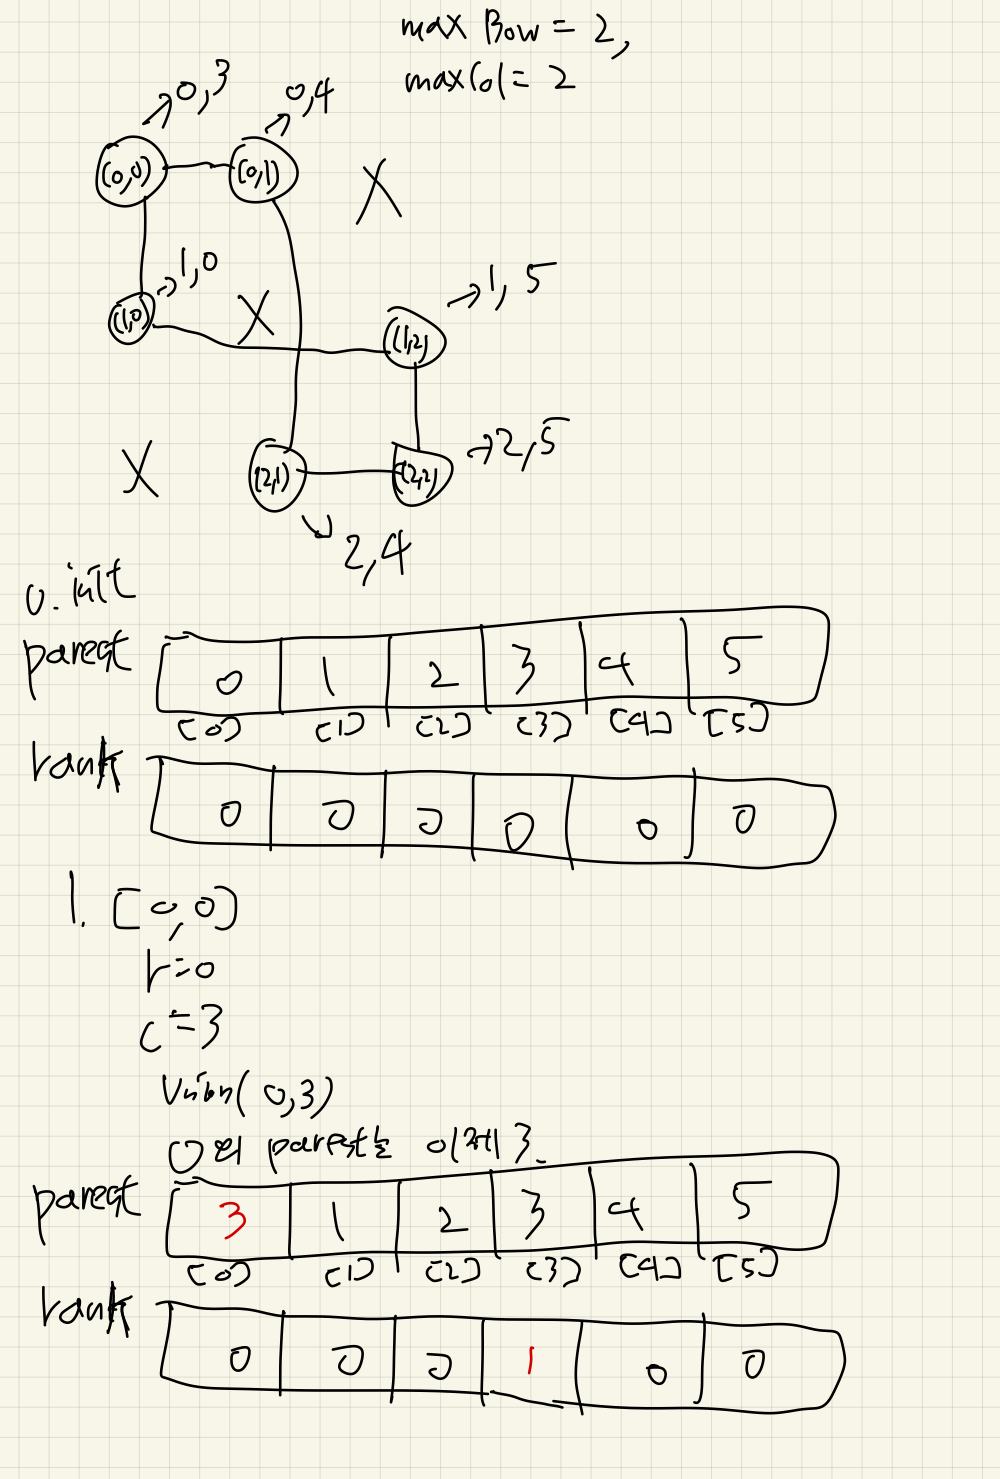 max Row = 2,
maxCol = 2
0,3
0,4
(0,0)
(0,1)
X
1,0
1,5
(1,0)
X
(1,2)
X
(2,1)
(2,2)
2,5
2,4
0. init
parent
0 1 2 3 4 5
[0] [1] [2] [3] [4] [5]
rank
0 0 0 0 0 0
1. [0,0]
r=0
c=3
Union(0,3)
0의 parent는 이제 3.
parent
3 1 2 3 4 5
[0] [1] [2] [3] [4] [5]
rank
0 0 0 1 0 0